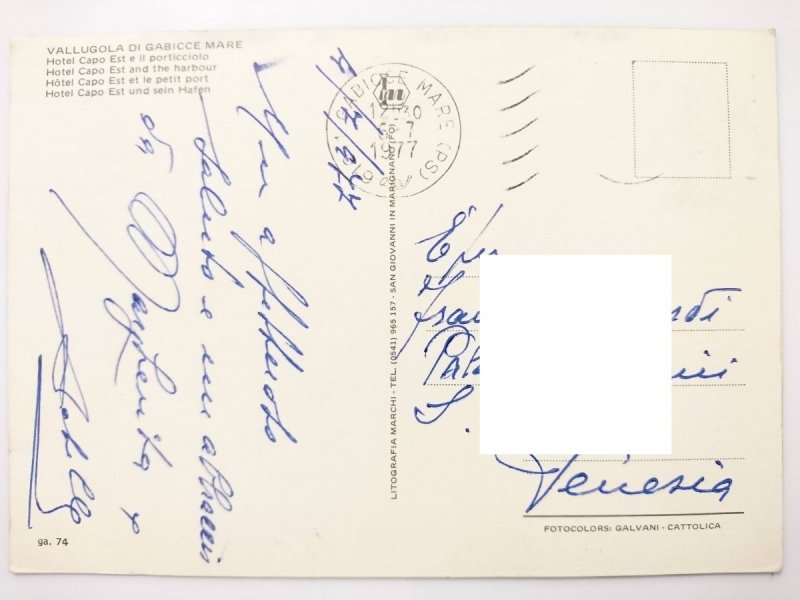 VALLUGOLA DI GABICCE MARE
Hotel Capo Est e il porticciolo
Hotel Capo Est and the harbour
Hôtel Capo Est et le petit port
Hotel Capo Est und sein Hafen
GABICCE MARE (PS)
1977
7/7/77
affettuoso
saluto e un abbraccio
da Margherita e
LITOGRAFIA MARCHI - TEL. (0541) 965 157 - SAN GIOVANNI IN MARIGNANO (FO)
S.
Venezia
FOTOCOLORS: GALVANI - CATTOLICA
ga. 74